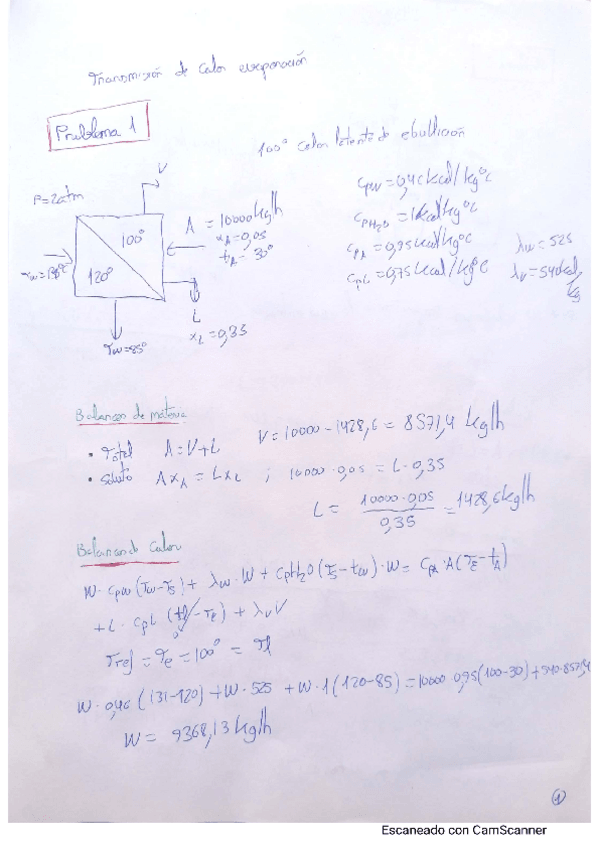 Transmisión de Calor evaporación
Problema 1
100° Calor latente de ebullición
P=2atm
V
A = 10000kg/h
xA=0,05
tA= 30°
100°
120°
L
xL=0,35
Tw=85°
CpW=0,46kcal/kg°C
CpH2O = 1kcal/kg°C
CpA = 0,95kcal/kg°C
CpL = 0,75kcal/kg°C
λw = 525
λv=540kcal/kg
Balances de materia
• Total A=V+L V=10000-1428,6 = 8571,4 kg/h
• soluto AxA = LxL ; 10000·0,05 = L·0,35
L = 10000·0,05 / 0,35 = 1428,6kg/h
Balance de Calor
W·Cpw(Tw-Ts)+ λw·W + CpH2O(Ts-tw)·W= CpA·A(TE-tA)
+L·CpL(tl-Te)+λvV
0
Tref = Te=100° = Tl
W·0,46(131-120)+W·525 +W·1(120-85)=10000·0,95(100-30)+540·8571,4
W= 9368,13kg/h
1
Escaneado con CamScanner